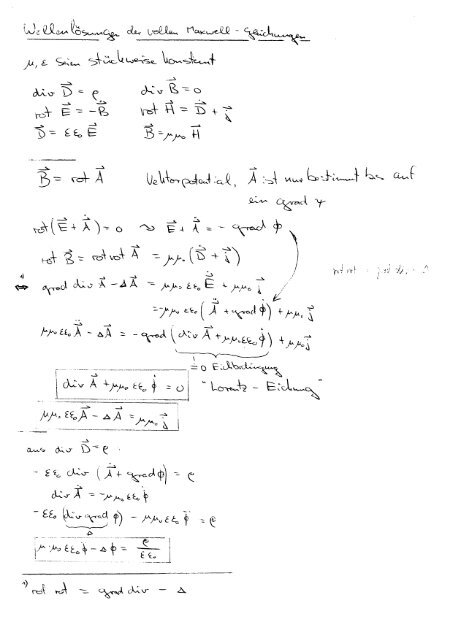 Wellenlösungen der vollen Maxwell-Gleichungen
μ, ε seien stückweise konstant
div D⃗ = ρ   div B⃗ = 0
rot E⃗ = -B⃗̇   rot H⃗ = D⃗̇ + j⃗
D⃗ = εε₀ E⃗   B⃗ = μμ₀ H⃗
B⃗ = rot A⃗   Vektorpotential, A⃗ ist nur bestimmt bis auf
ein grad ψ
rot(E⃗ + A⃗̇) = 0 ↝ E⃗ + A⃗̇ = - grad ϕ
rot B⃗ = rot rot A⃗ = μμ₀ (D⃗̇ + j⃗)
*) ⇔ grad div A⃗ - ΔA⃗ = μμ₀ εε₀ E⃗̇ + μμ₀ j⃗
= -μμ₀ εε₀ (A⃗̈ + grad ϕ̇) + μμ₀ j⃗
μμ₀εε₀ A⃗̈ - ΔA⃗ = -grad (div A⃗ + μμ₀εε₀ ϕ̇) + μμ₀ j⃗
= 0 Eichbedingung
div A⃗ + μμ₀ εε₀ ϕ̇ = 0   "Lorentz-Eichung"
μμ₀ εε₀ A⃗̈ - ΔA⃗ = μμ₀ j⃗
aus div D⃗ = ρ
- εε₀ div (A⃗̇ + grad ϕ) = ρ
div A⃗ = -μμ₀ εε₀ ϕ̇
- εε₀ (div grad ϕ) - μμ₀ εε₀ ϕ̈ = ρ
Δ
μμ₀εε₀ ϕ̈ - Δϕ = ρ/εε₀
*) rot rot = grad div - Δ